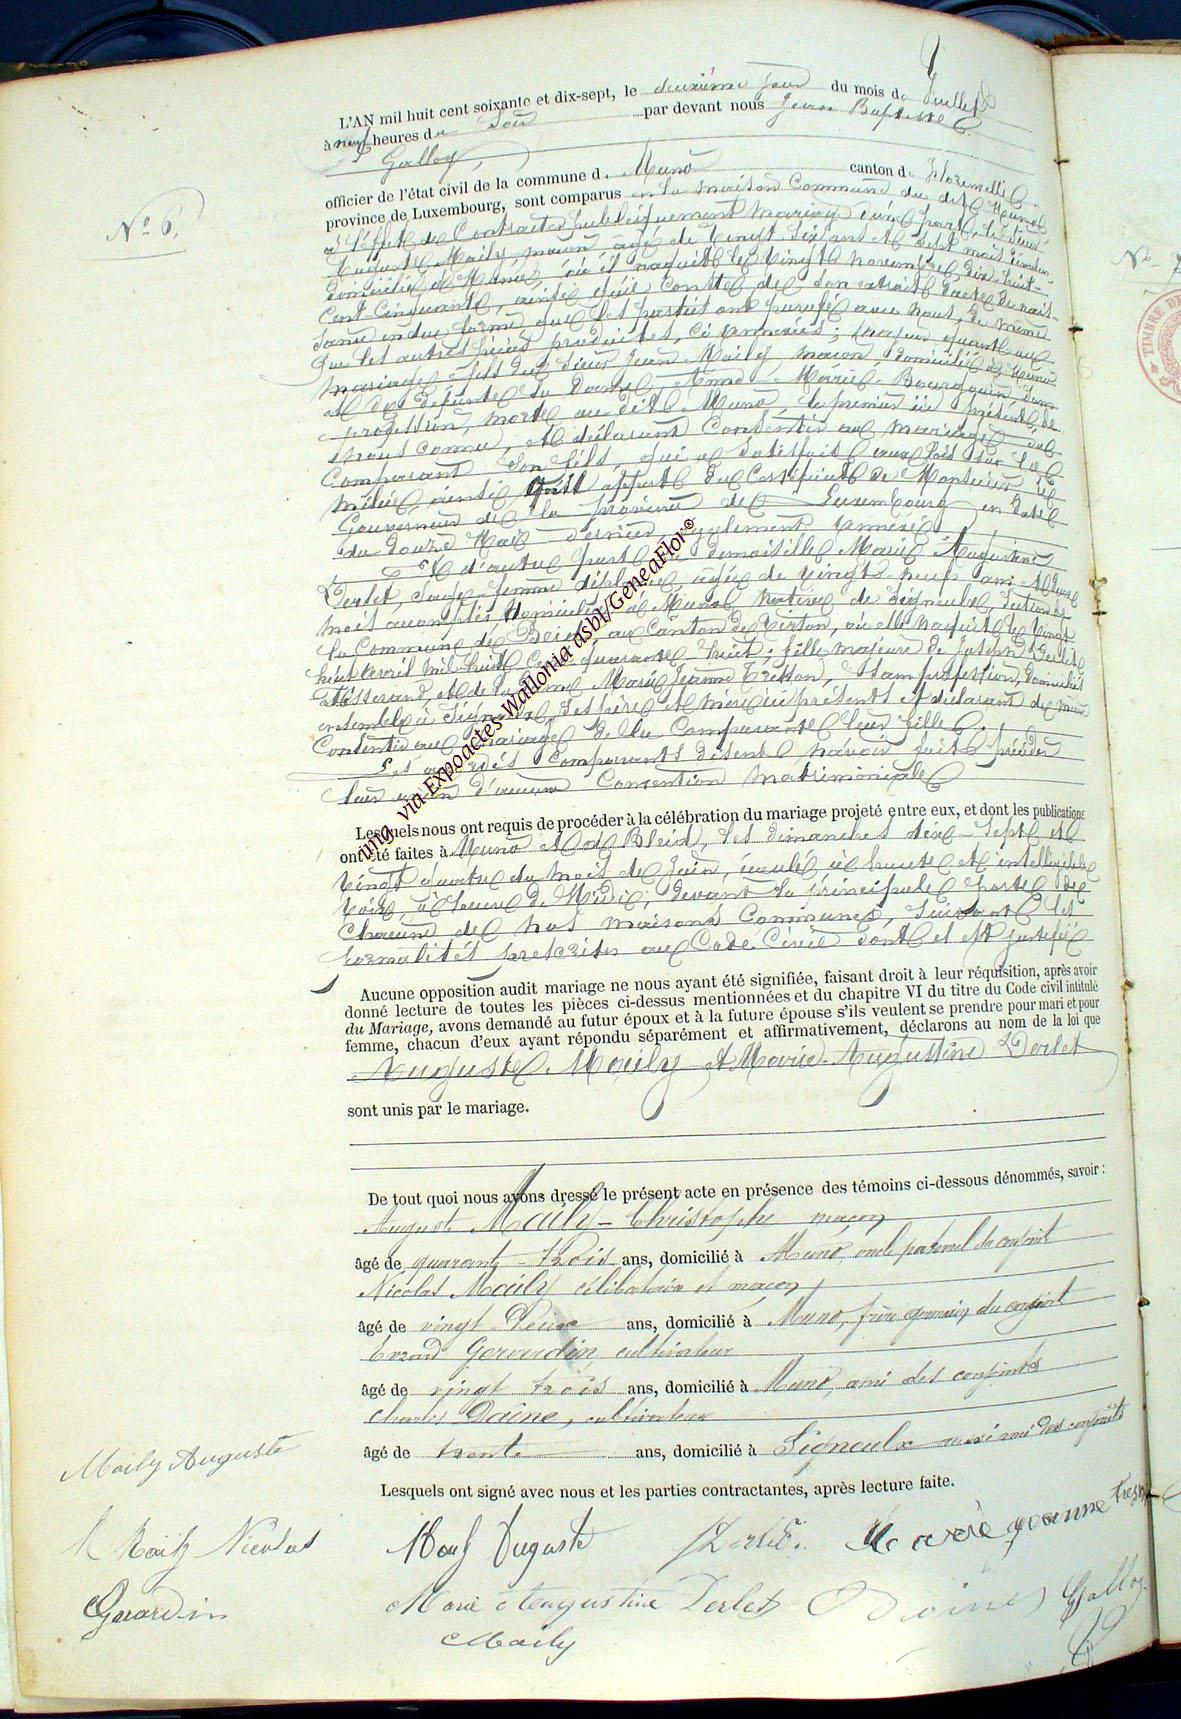 L'AN mil huit cent soixante et dix-sept, le deuxième jour du mois de Juillet
à neuf heures du Soir par devant nous Jean Baptiste
Galloy,
officier de l'état civil de la commune de Muno canton de Florenville
province de Luxembourg, sont comparus en la maison Commune du dit Muno
N° 6.
à l'effet de Contracter publiquement mariage d'une part, le Sieur
Auguste Maily, maçon, agé de vingt six ans et sept mois
domicilié à Muno, où il naquit le vingt novembre, dix-huit-
Cent Cinquante, ainsi qu'il conste de son extrait d'acte de nais-
sance en due forme, que les parties ont parafé avec nous, de même
que les autres pièces produites, ci annexées; majeur quant au
mariage, fils du Sieur Jean Maily maçon, domicilié à Muno
et de défunte la Dame Anne Marie Bourguin, sans
profession, morte au dit Muno, le premier ici présent, de
nous connu, et déclarant Consentir au mariage du
Comparant Son fils, qui a Satisfait aux lois sur la
milice, ainsi qu'il appert du Certificat de Monsieur le
Gouverneur de la province de Luxembourg en date
du douze Mai dernier également annexé.
Et d'autre part la demoiselle Marie Augustine
Derlet, Sage-femme diplomée, agée de vingt-neuf ans et deux
mois accomplis, domiciliée à Muno, native de Signeulx, Section de
la Commune de Bleid, au Canton de Virton, où elle naquit le vingt
huit avril mil huit Cent quarante huit; fille majeure de Joseph Derlet
tisserand, et de la Dame Marie Jeanne Tresson, Sans profession, domiciliés
ensemble à Signeulx, ses père et mère ici présents et déclarant de même
Consentir au mariage de la Comparante leur fille.
Les Comparants disent n'avoir fait précéder
leur union d'aucune Convention Matrimoniale
Lesquels nous ont requis de procéder à la célébration du mariage projeté entre eux, et dont les publications
ont été faites à Muno et à Bleid, les dimanches dix-Sept et
Vingt quatre du mois de Juin, écoulé, à haute et intelligible
voix, à l'heure de Midi, devant la principale porte de
Chacune de nos maisons Communes, Suivant les
formalités prescrites au Code Civil dont il est justifié
Aucune opposition audit mariage ne nous ayant été signifiée, faisant droit à leur réquisition, après avoir
donné lecture de toutes les pièces ci-dessus mentionnées et du chapitre VI du titre du Code civil intitulé
du Mariage, avons demandé au futur époux et à la future épouse s'ils veulent se prendre pour mari et pour
femme, chacun d'eux ayant répondu séparément et affirmativement, déclarons au nom de la loi que
Auguste Maily et Marie Augustine Derlet
sont unis par le mariage.
De tout quoi nous avons dressé le présent acte en présence des témoins ci-dessous dénommés, savoir :
Auguste Maily-Christophe maçon
âgé de quarante-trois ans, domicilié à Muno, oncle paternel du conjoint
Nicolas Maily célibataire et maçon,
âgé de vingt Deux ans, domicilié à Muno, frère germain du conjoint
Gérardin, cultivateur
âgé de vingt trois ans, domicilié à Muno, ami des conjoints
Charles Daine, cultivateur
âgé de trente ans, domicilié à Signeulx aussi ami des conjoints
Lesquels ont signé avec nous et les parties contractantes, après lecture faite.
Maily Auguste
Maily Nicolas
Maily Auguste
Marie jeanne
Gérardin
Marie Augustine Derlet
Galloy
Maily
img. via Expoactes-Wallonia asbl/GeneaFlor©
N° 7
TIMBRE DE